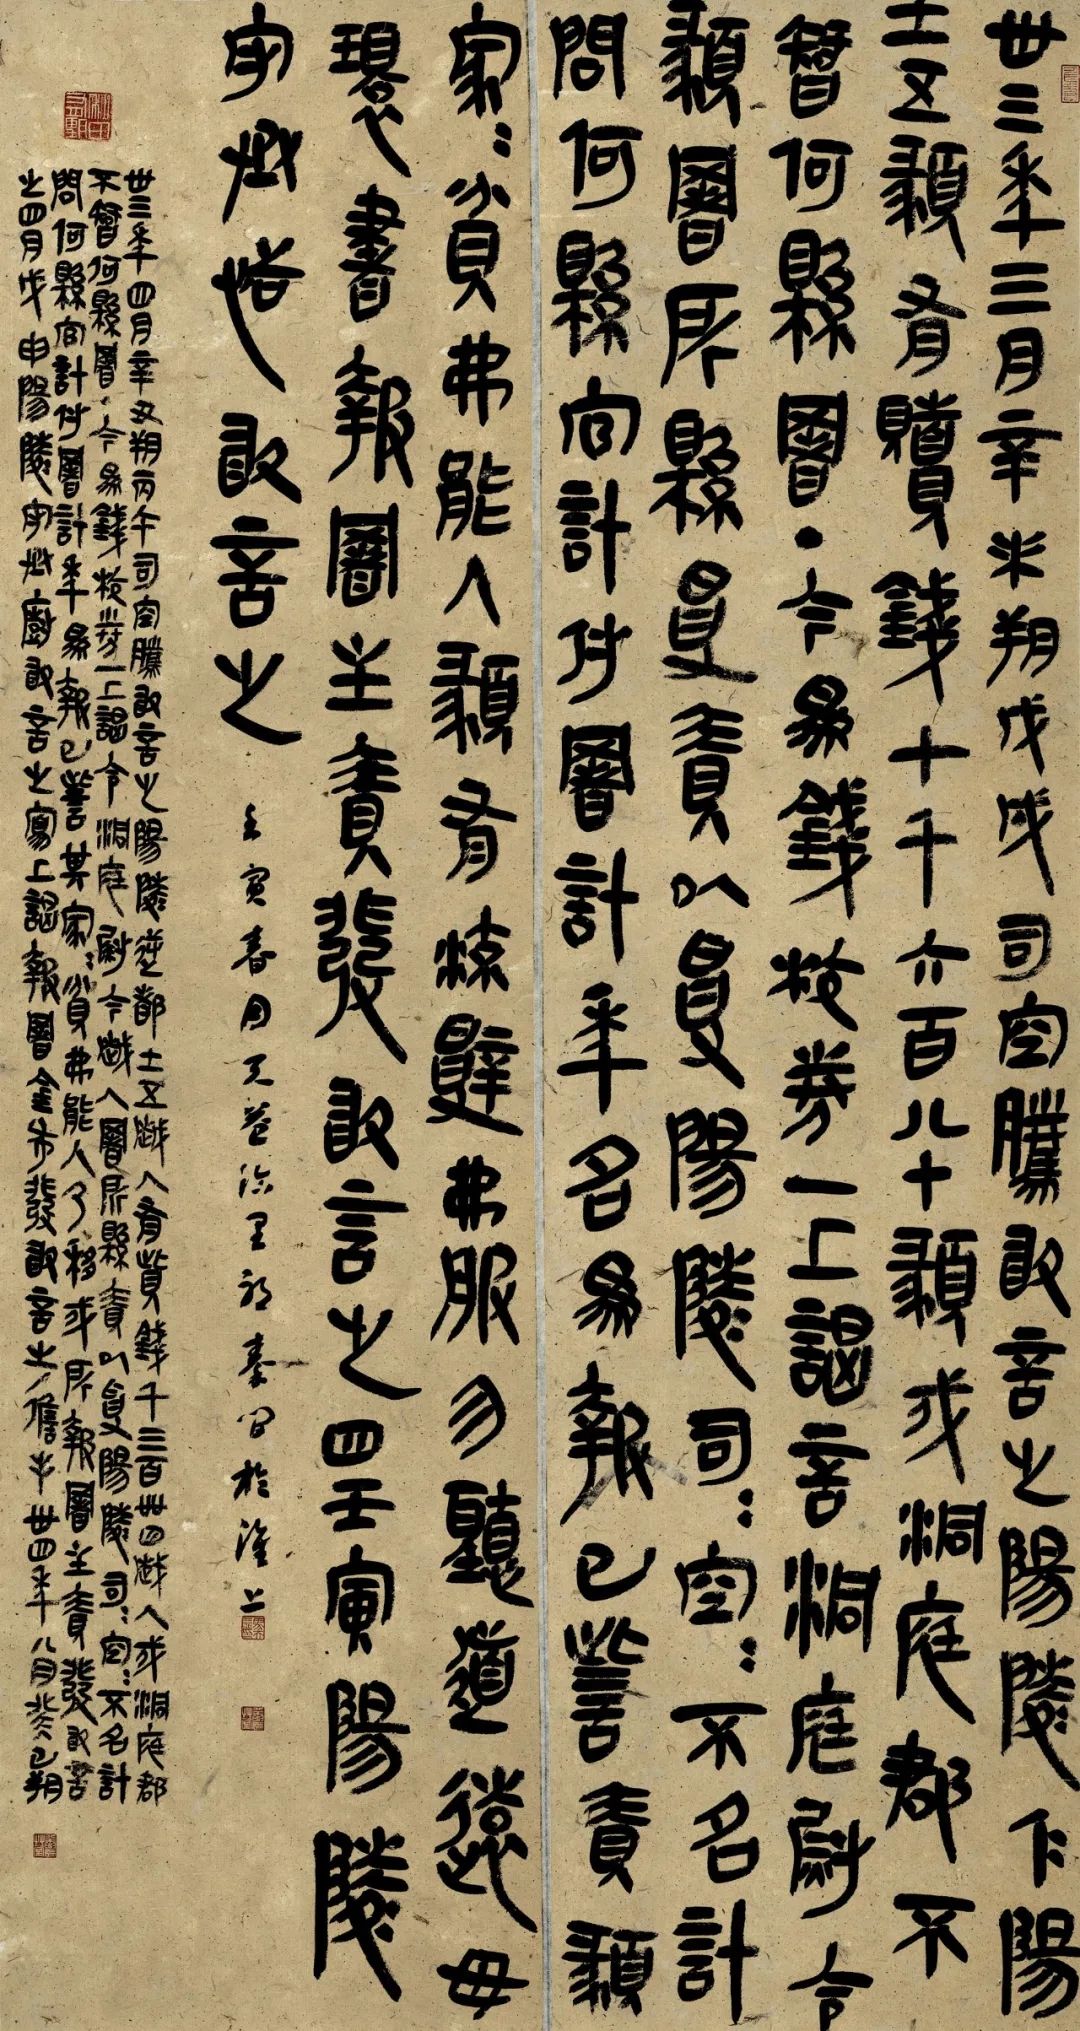 卅三年三月辛未朔戊戌司空騰敢言之陽陵仁陽
士五頯有贖錢七千六百八十頯戍洞庭郡不
智何縣署・今為錢校券一上謁言洞庭尉令
頯署所縣受責以受陽陵司=空=不名計
問何縣官計付署計年名為報已訾責頯
家=貧弗能入頯有流辭弗服勿聽道遠毋
環書報署主責發敢言之四壬寅陽陵
守丞恬敢言之
壬寅春月天益臨里耶秦簡於滬上
卅三年四月辛丑朔丙午司空騰敢言之陽陵逆都士五越人有貲錢千三百卌四越人戍洞庭郡
不智何縣署・今為錢校券一上謁令洞庭尉令越人署所縣責以受陽陵司=空=不名計
問何縣官計付署計年為報已訾其家=貧弗能入乃移戍所報署主責發敢言
之四月戊申陽陵守丞廚敢言之寫上謁報署金布發敢言之儋手卅四年八月癸巳朔